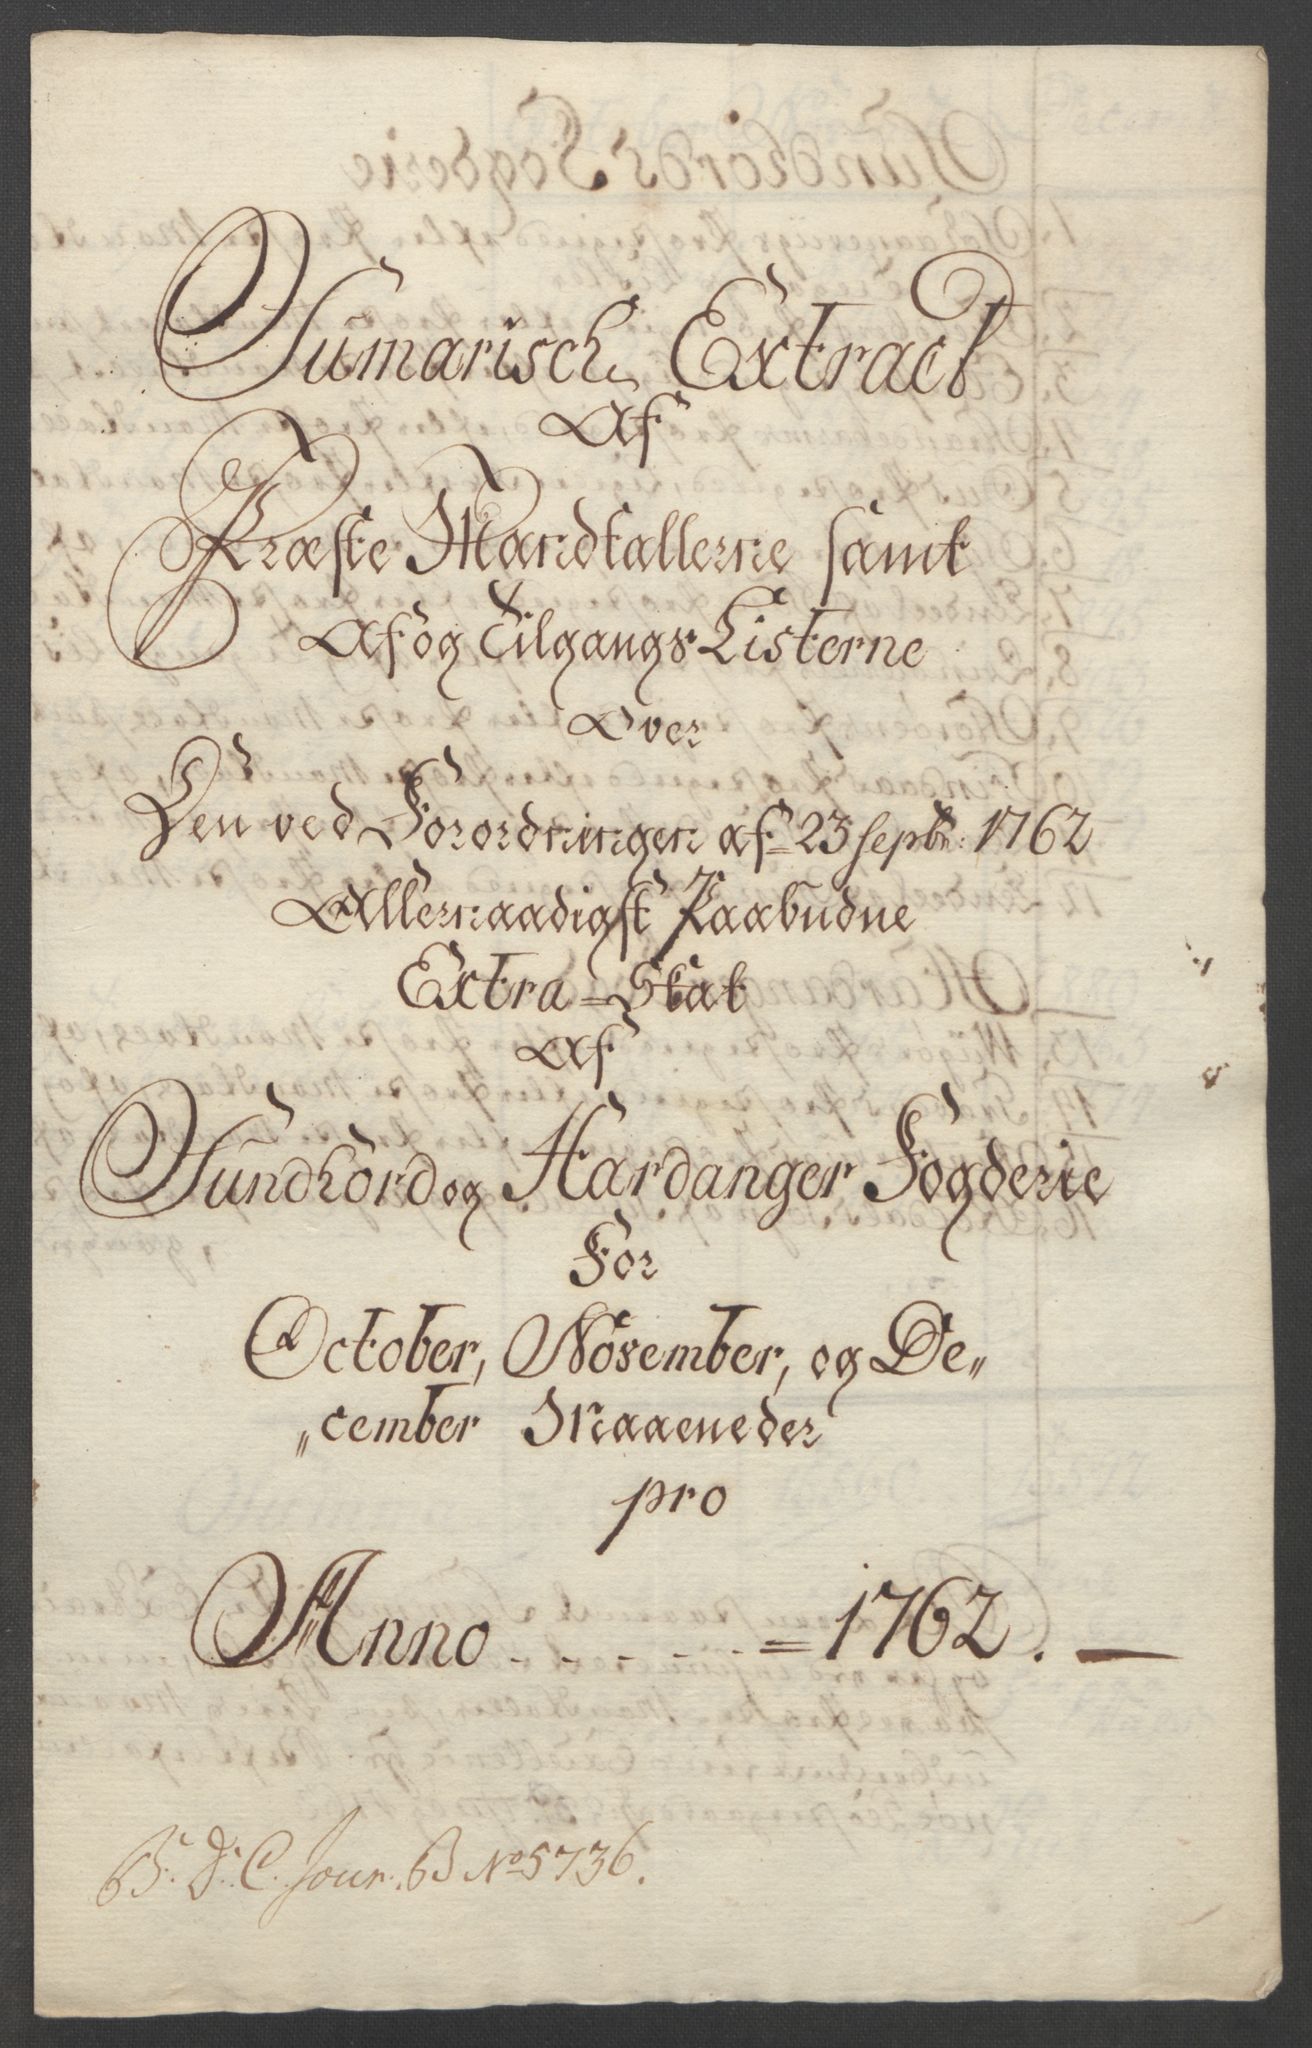 Sumarisch Extract
Af
Præste Mandtallerne samt
Af og Tilgangs Listerne
Over
Den ved Forordningen af 23 Septbr: 1762
Allernaadigst Paabudne
Extra-Skat
Af
Sundhord og Hardanger Fogderie
For
October, November, og De„
„cember Maaneder
pro
Anno - - - - - = 1762. —
B. D. C. Jour. B No 5736.